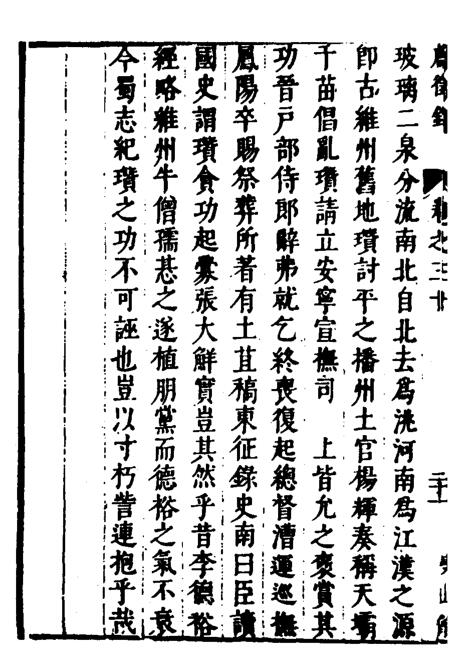 玻瓈二泉分流南北自北去爲洮河南爲江漢之源
卽古維州舊地瓚討平之播州土官楊輝奏稱天壩
干苗倡亂瓚請立安寧宣撫司　上皆允之褒賞其
功晉戶部侍郎辭弗就乞終喪復起總督漕運巡撫
鳳陽卒賜祭葬所著有土苴稿東征錄史南曰臣讀
國史謂瓚貪功起釁張大鮮實豈其然乎昔李德裕
經略維州牛僧孺惎之遂植朋黨而德裕之氣不衰
今蜀志紀瓚之功不可誣也豈以寸朽訾連抱乎哉